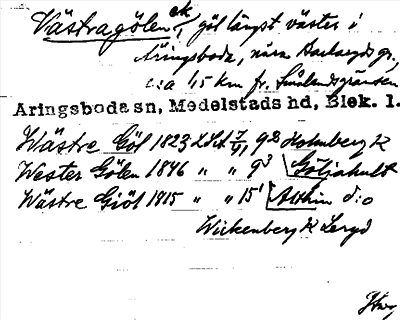 Västragölen, ek, göl längst väster i
Åringsboda, nära
c:a 1,5 km fr. Smålandsgränsen
Aringsboda sn, Medelstads hd, Blek. l.
Wästre Göl 1823 LSA 9 Holmberg K
Wester Gölen 1846 " " 9³ Göljahult
Wästre Giöl 1915 " " 15¹ d:o
Wickenberg K